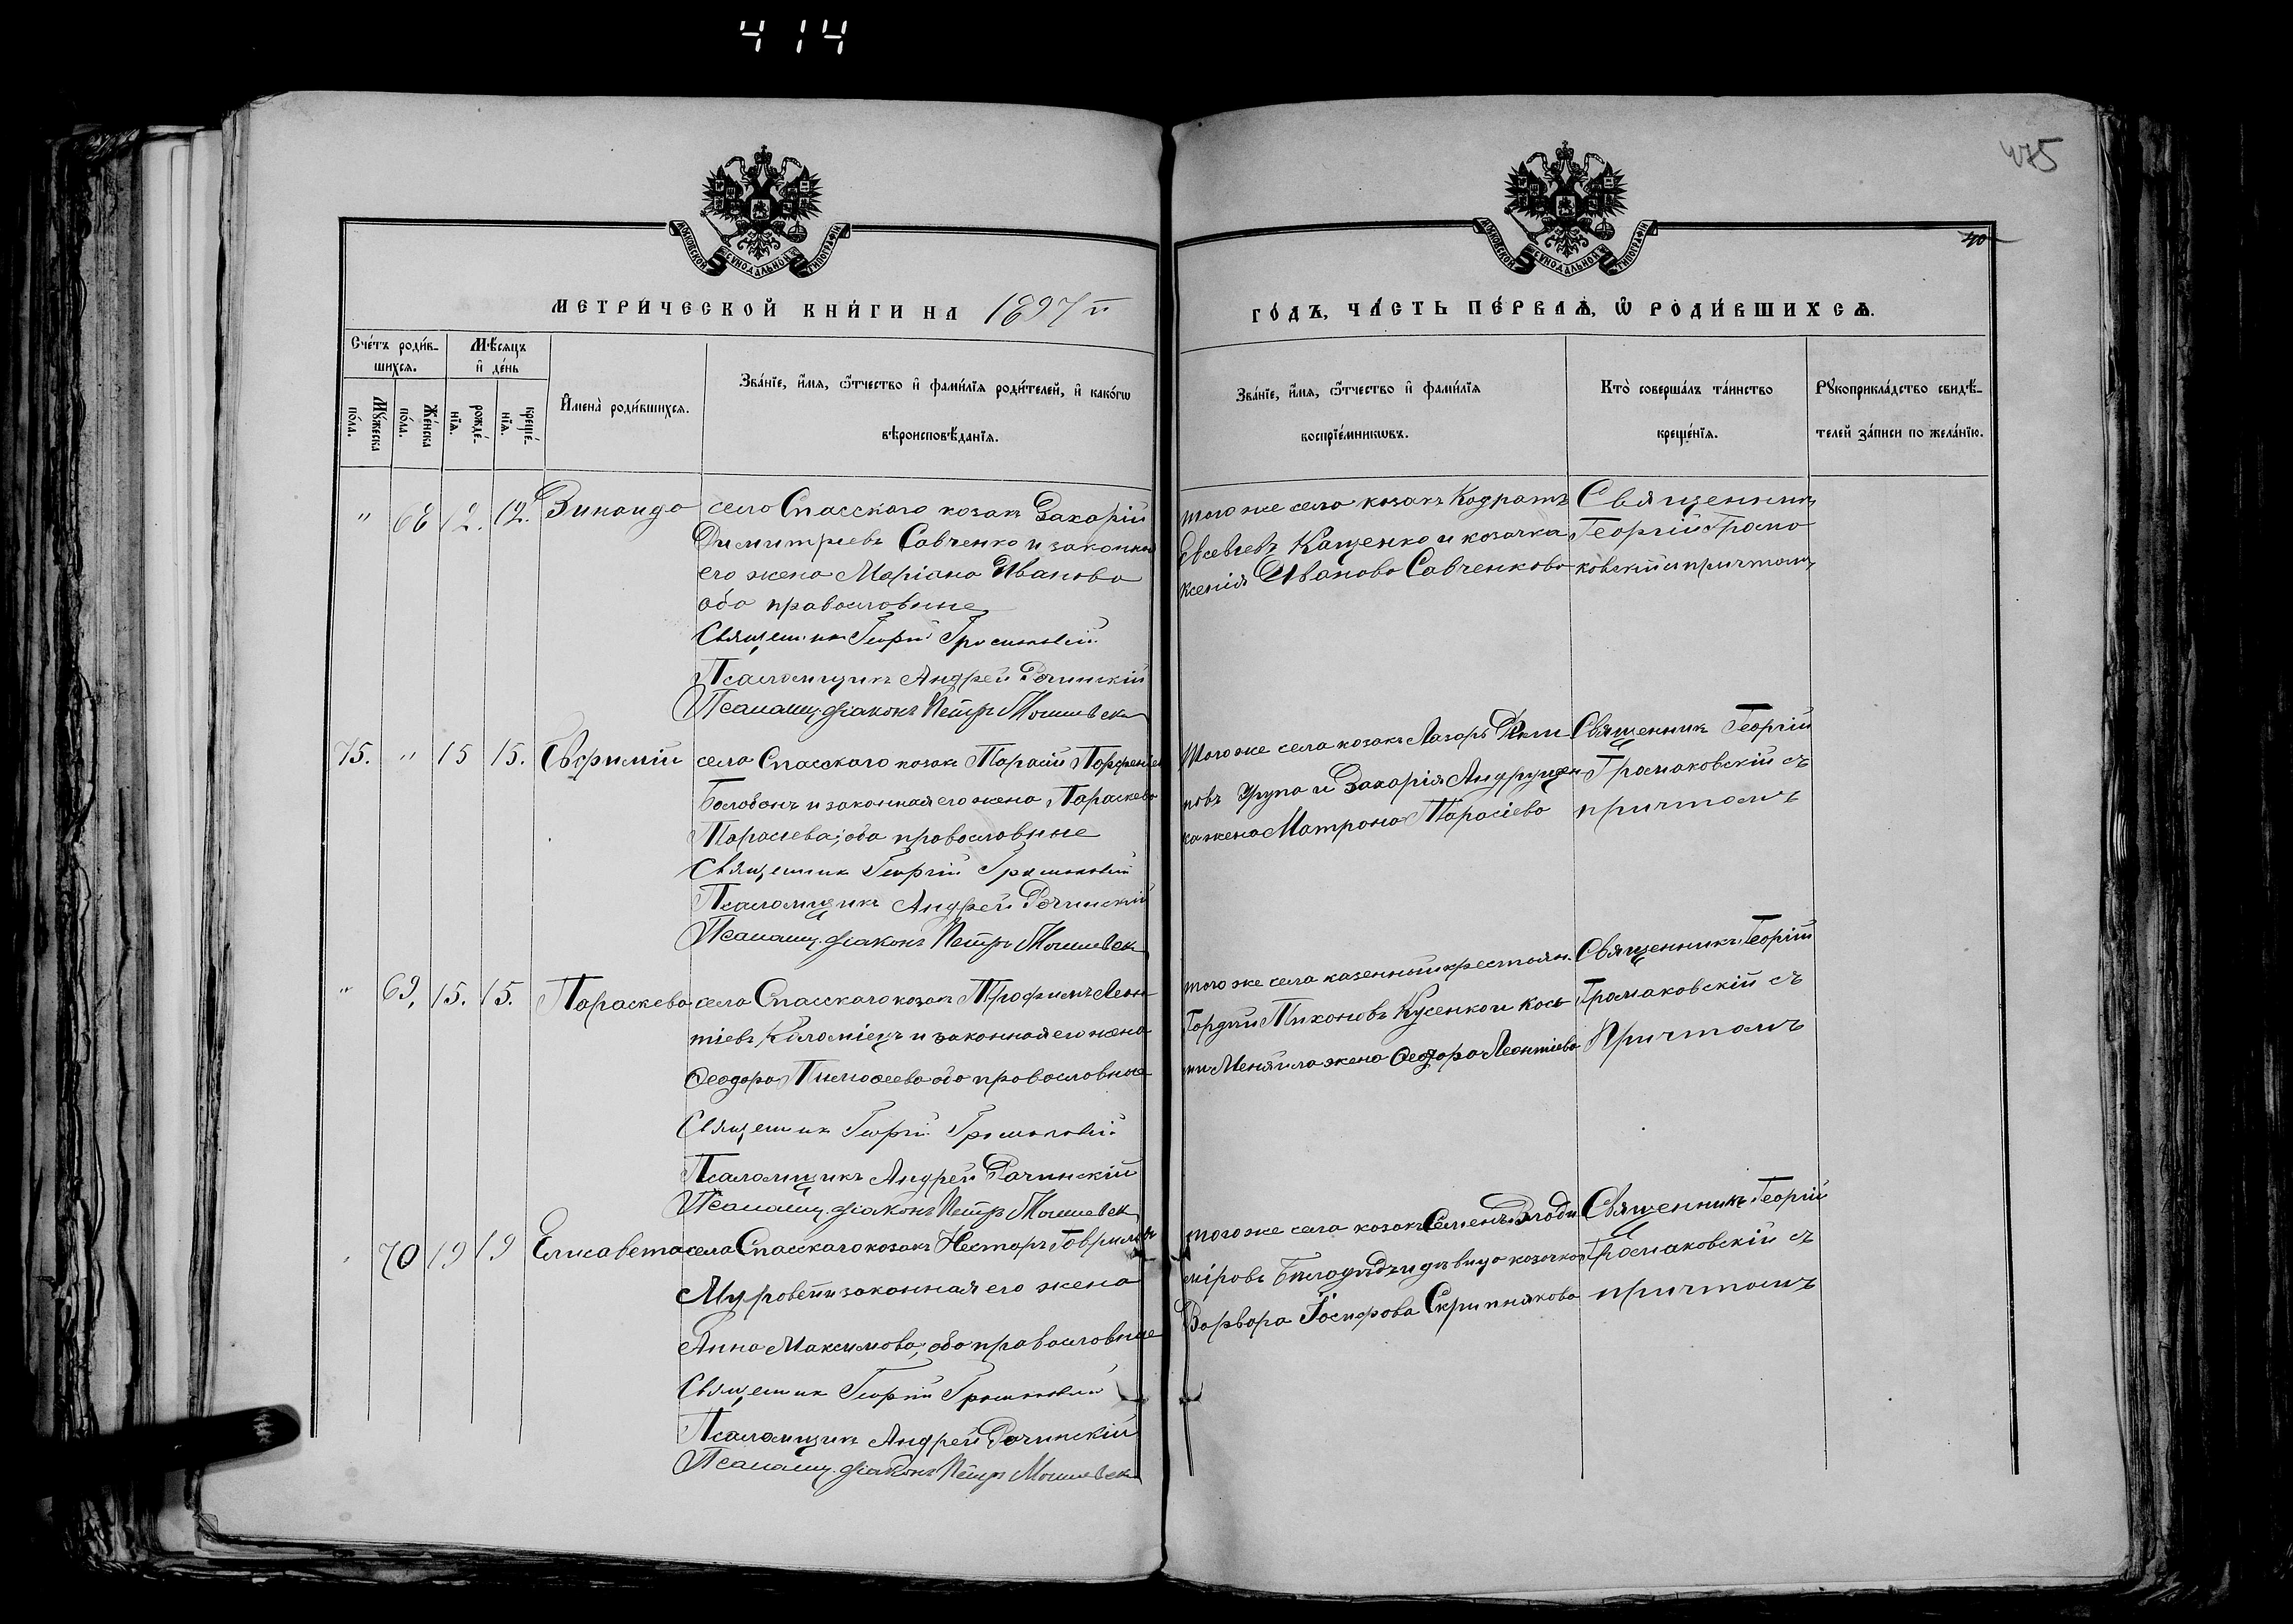 414
475
40
МОСКОВСКОЙ СѴНОДАЛЬНОЙ ТИПОГРАФІИ
МОСКОВСКОЙ СѴНОДАЛЬНОЙ ТИПОГРАФІИ
МЕТРИ́ЧЕСКОЙ КНИ́ГИ НА 1897й
ГО́ДЪ, ЧА́СТЬ ПЕ́РВАѦ, Ѡ РОДИ́ВШИХСѦ.
Сче́тъ роди́в-
шихсѧ.
Мѣ́сѧцъ
и де́нь
Имена̀ роди́вшихсѧ.
Зва́нїе, и́мѧ, ѻ́тчество и фами́лїѧ роди́телей, и како́гѡ
вѣроисповѣ́данїѧ.
Мꙋ́жеска
по́ла.
Же́нска
по́ла.
рожде́-
нїѧ.
креще́-
нїѧ.
Зва́нїе, и́мѧ, ѻ́тчество и фами́лїѧ
воспрїе́мникѡвъ.
Кто̀ соверша́лъ та́инство
креще́нїѧ.
Рꙋкоприкла́дство свидѣ́-
телей за́писи по жела́нїю.
" 68 12. 12. Зинаида
села Спасскаго козакъ Захарій
Димитріевъ Савченко и законная
его жена Маріана Иванова
оба православные
Священникъ Георгій Громаковскій
Псаломщикъ Андрей Рачинскій
Псаломщ. діаконъ Петръ
того же села козакъ Кодратъ
Евсевіевъ Кащенко и козачка
Ксенія Иванова Савченкова
Священникъ
Георгій Грома
ковскій и причтомъ
75. " 15 15. Евфимій
села Спасскаго козакъ Тарасій Парфеніев
Балобанъ и законная его жена Параскева
Тарасіева; оба православные
Священникъ Георгій Громаковскій
Псаломщикъ Андрей Рачинскій
Псаломщ. діаконъ Петръ
Того же села козакъ Лазарь
новъ и Захарія Андрущен
ка жена Матрона Тарасіева
Священникъ Георгій
Громаковскій съ
причтомъ
" 69. 15. 15. Параскева
села Спасскаго козакъ Трофимъ Леон
тіевъ Коломіецъ и законная его жена
Ѳеодора Тимоѳеева оба православные
Священникъ Георгій Громаковскій
Псаломщикъ Андрей Рачинскій
Псаломщ. діаконъ Петръ
того же села казенный крестьян.
Гордій Тихоновъ Кусенко и Кось
мы Меняйла жена Ѳеодора Леонтіева
Священникъ Георгій
Громаковскій съ
Причтомъ
" 70 19 19 Елисавета
села Спасскаго козакъ Несторъ Гавриловъ
и законная его жена
Анна Максимова; оба православные
Священникъ Георгій Громаковскій
Псаломщикъ Андрей Рачинскій
Псаломщ. діаконъ Петръ
того же села козакъ Семенъ Влади
міровъ Билодидъ и дѣвица козачка
Варвара Іосифова Скрипнякова
Священникъ Георгій
Громаковскій съ
причтомъ